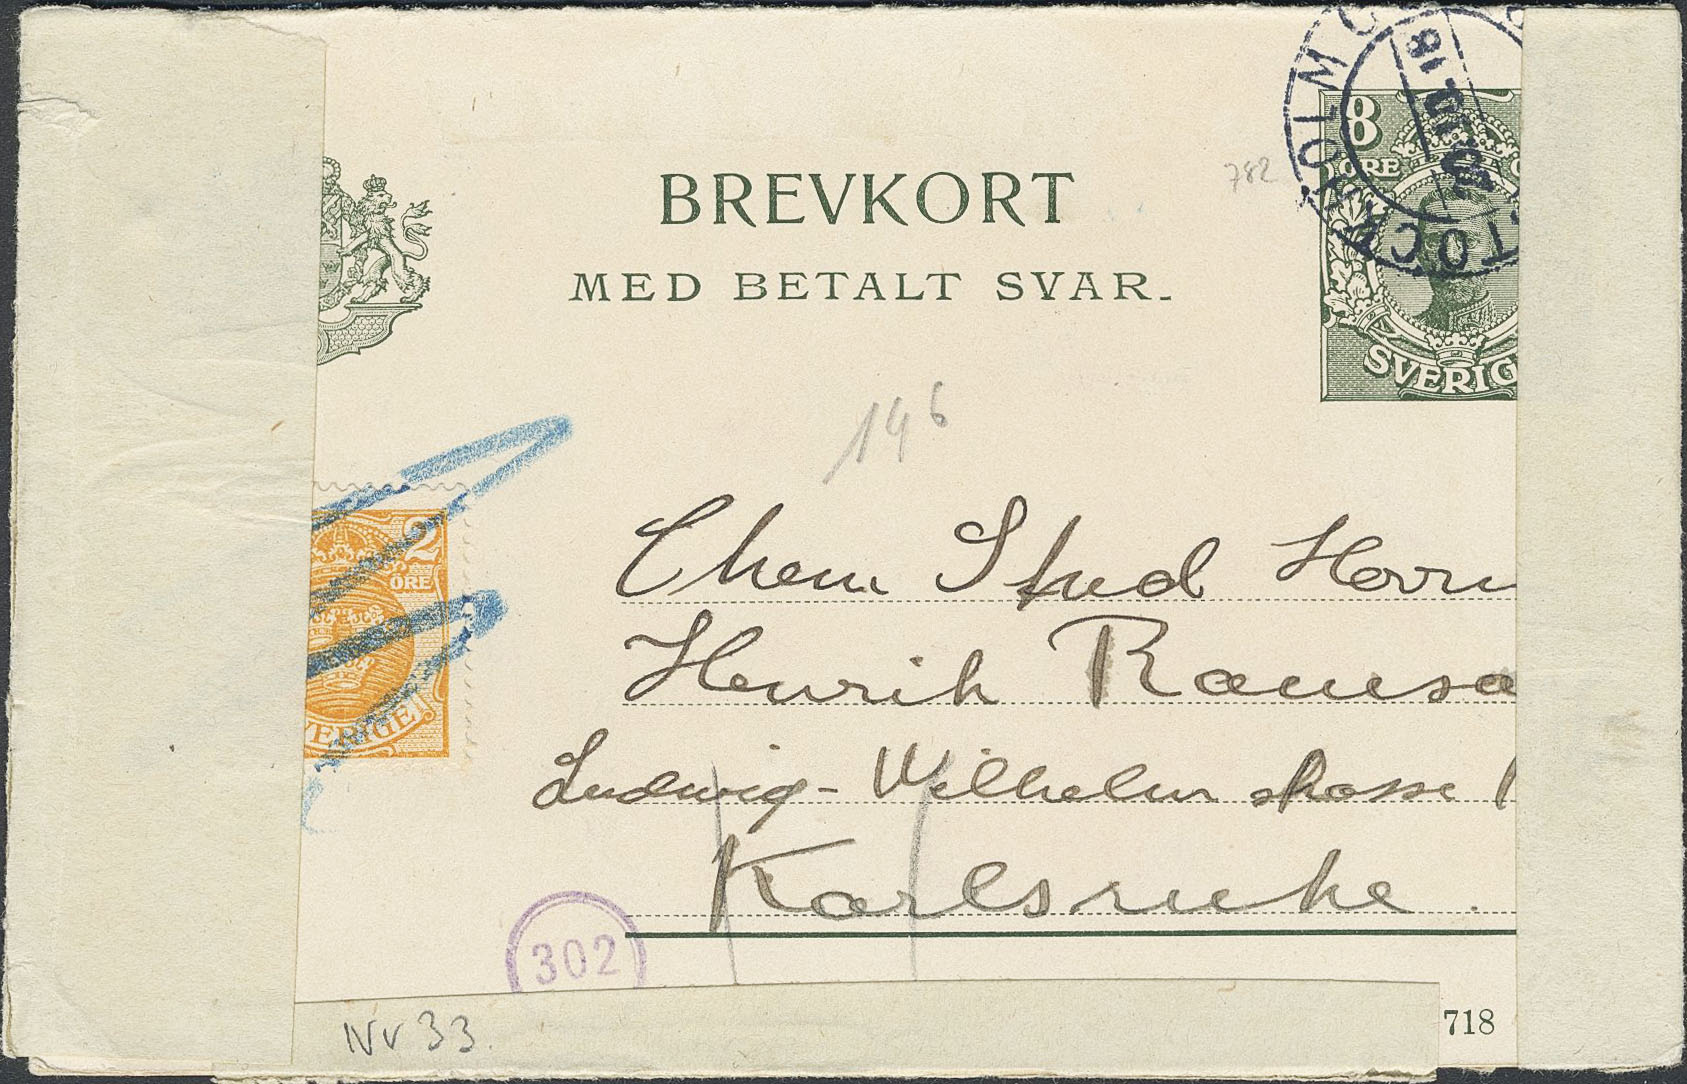 BREVKORT
MED BETALT SVAR.
STOCKHOLM
8
ÖRE
SVERIG
782
146
2
ÖRE
VERIGE
Chem Stud Herrn
Henrik Ramsa
Ludwig-Wilhelm strasse 1
Karlsruhe.
302
Nr 33.
718